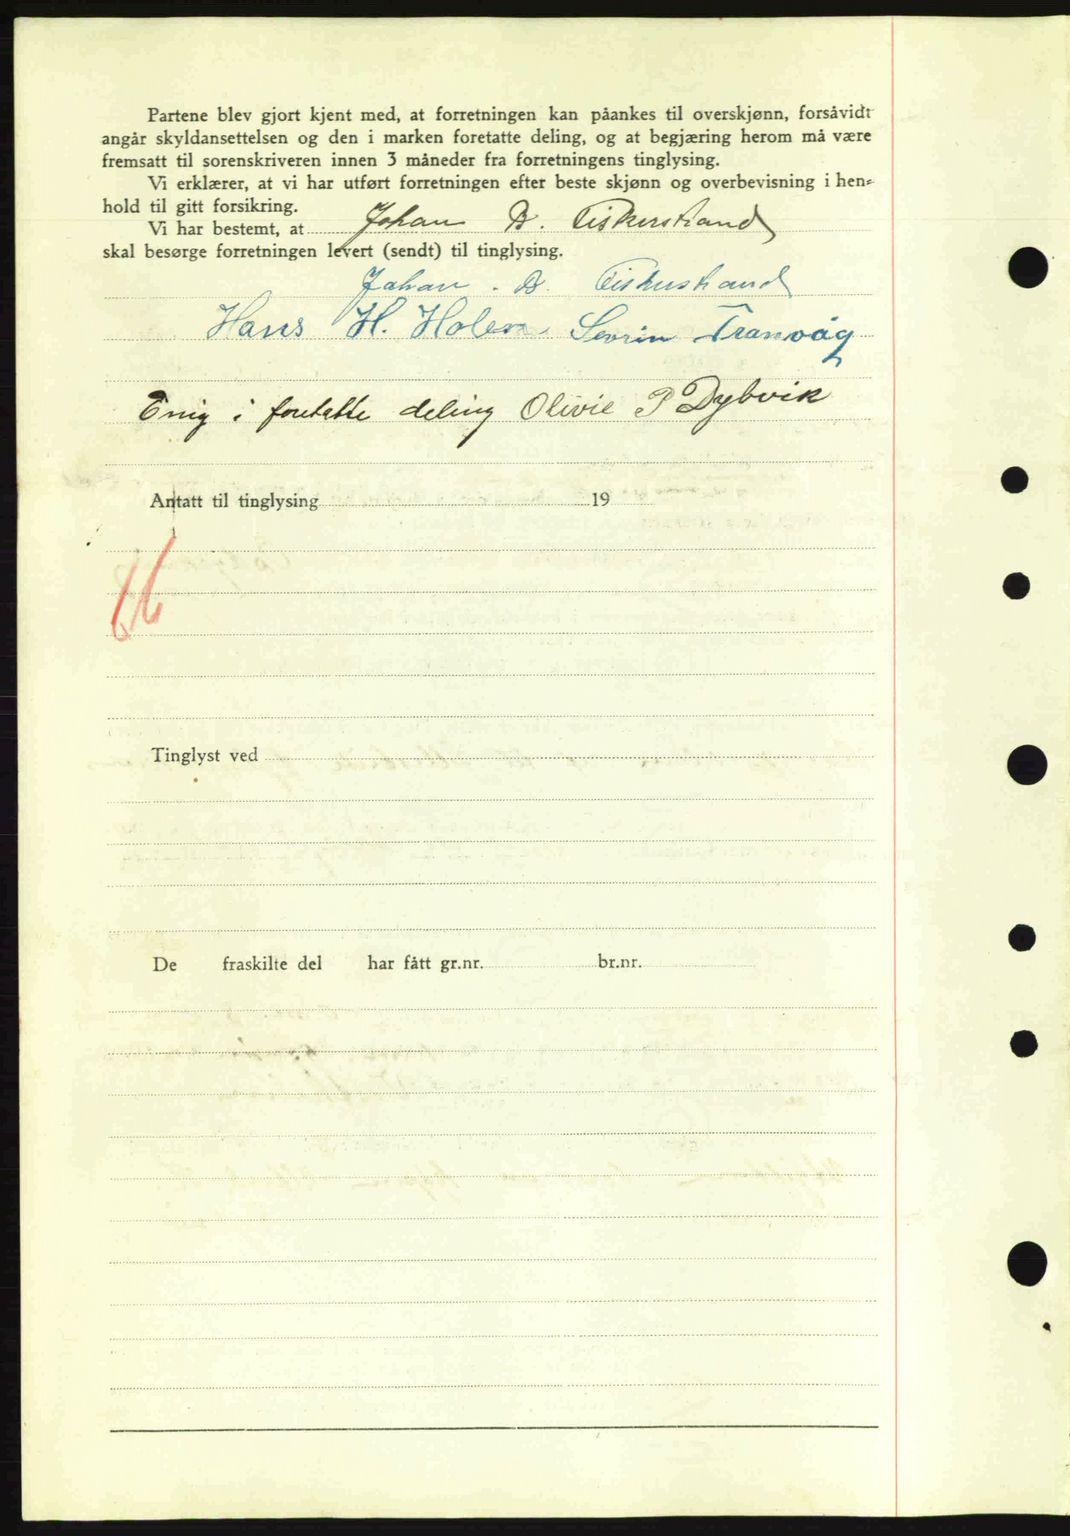 Partene blev gjort kjent med, at forretningen kan påankes til overskjønn, forsåvidt
angår skyldansettelsen og den i marken foretatte deling, og at begjæring herom må være
fremsatt til sorenskriveren innen 3 måneder fra forretningens tinglysing.
Vi erklærer, at vi har utført forretningen efter beste skjønn og overbevisning i hen-
hold til gitt forsikring.
Vi har bestemt, at Johan B. Fiskerstrand
skal besørge forretningen levert (sendt) til tinglysing.
Johan B. Fiskerstrand
Hans H. Holen. Sevrin Tranvåg
Enig i foretatte deling Olivie P Dybvik
Antatt til tinglysing 19
66
Tinglyst ved
De fraskilte del har fått gr.nr. br.nr.